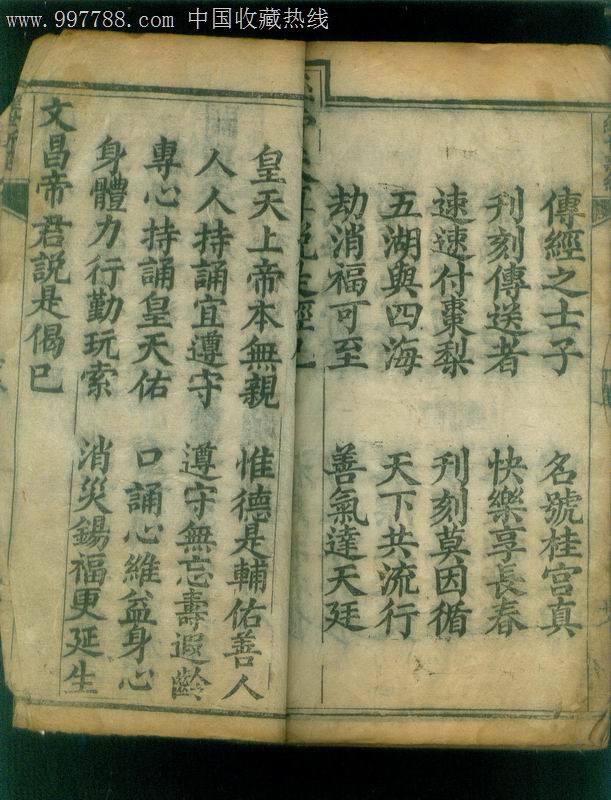 www.997788.com 中国收藏热线
傳經之士子 名號桂宫真
刊刻傳送者 快樂享長春
速速付棗梨 刊刻莫因循
五湖與四海 天下共流行
劫消福可至 善氣達天廷
皇天上帝本無親 惟德是輔佑善人
人人持誦宜遵守 遵守無忘壽遐齡
專心持誦皇天佑 口誦心維益身心
身體力行勤玩索 消災錫福更延生
文昌帝君説是偈已